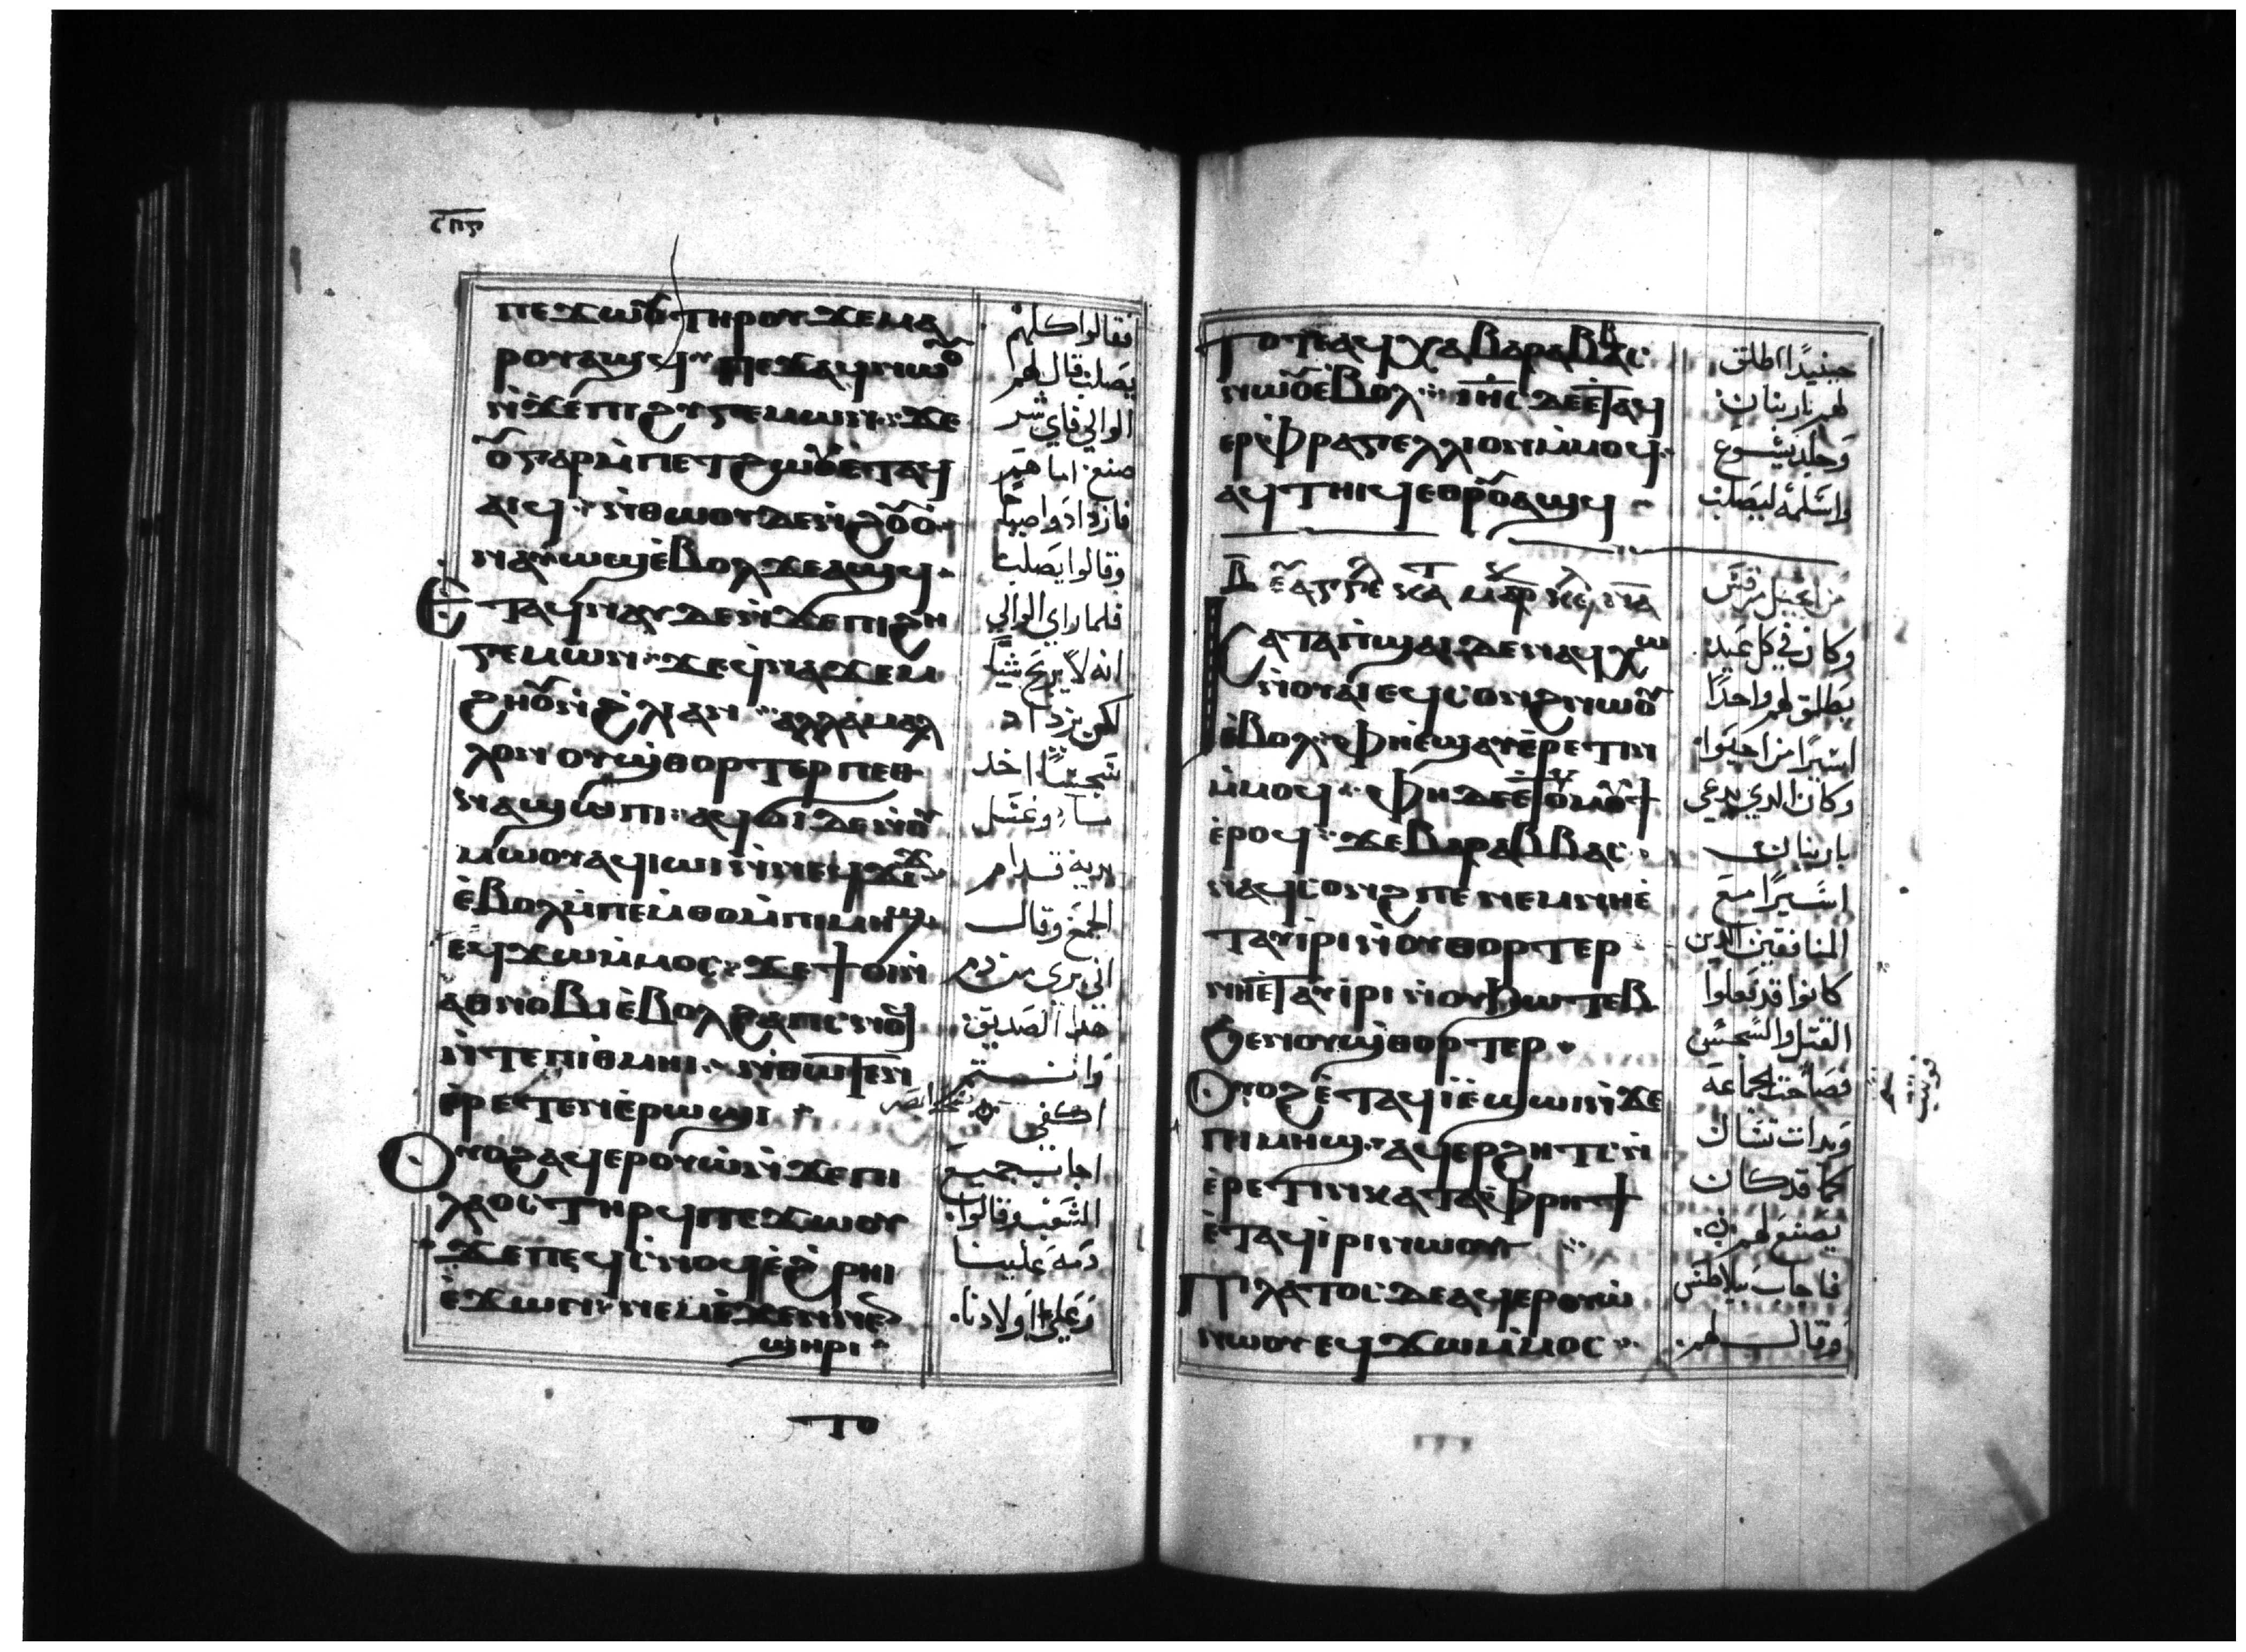 ⲡⲉϫⲱⲟⲩ ⲧⲏⲣⲟⲩ ϫⲉ ⲙⲁ
ⲣⲟⲩⲁϣϥ ⲡⲉϫⲁϥ ⲛⲱⲟⲩ
ⲛ̀ϫⲉ ⲡⲓϩⲩⲅⲉⲙⲱⲛ ϫⲉ
ⲟⲩ ⲅⲁⲣ ⲙ̀ⲡⲉⲧϩⲱⲟⲩ ⲉ̀ⲧⲁϥ
ⲁⲓϥ ⲛ̀ⲑⲱⲟⲩ ⲇⲉ ⲛ̀ϩⲟⲩⲟ
ⲛⲁⲩⲱϣ ⲉ̀ⲃⲟⲗ ϫⲉ ⲁϣϥ
ⲉⲧⲁϥⲛⲁⲩ ⲇⲉ ⲛ̀ϫⲉ ⲡⲓϩⲏ
ⲅⲉⲙⲱⲛ ϫⲉ ϥ̀ⲛⲁϫⲉⲙ
ϩⲏⲟⲩ ⲛ̀ϩⲗⲓ ⲁⲛ ⲁⲗⲗⲁ ⲙⲁⲗ
ⲗⲟⲛ ⲟⲩϣ̀ⲑⲟⲣⲧⲉⲣ ⲡⲉⲑ
ⲛⲁϣⲱⲡⲓ ⲁϥϭⲓ ⲇⲉ ⲛ̀ⲟⲩ
ⲙⲱⲟⲩ ⲁϥⲓⲱⲓ ⲛ̀ⲛⲉϥϫⲓϫ
ⲉ̀ⲃⲟⲗ ⲙ̀ⲡⲉⲙ̀ⲑⲟ ⲙ̀ⲡⲓⲙⲏϣ
ⲉϥϫⲱ ⲙ̀ⲙⲟⲥ ϫⲉ ϯⲟⲓ ⲛ̀
ⲁⲑⲛⲟⲃⲓ ⲉ̀ⲃⲟⲗ ϩⲁ ⲡ̀ⲥⲛⲟϥ
ⲛ̀ⲧⲉ ⲡⲓⲑⲙⲏⲓ ⲛ̀ⲑⲱⲧⲉⲛ
ⲉ̀ⲣⲉⲧⲉⲛⲉ̀ⲣⲱϣⲓ
ⲟⲩⲟϩ ⲁϥⲉⲣⲟⲩⲱ̀ ⲛ̀ϫⲉ ⲡⲓ
ⲗⲁⲟⲥ ⲧⲏⲣϥ ⲡⲉϫⲱⲟⲩ
ϫⲉ ⲡⲉϥⲥ̀ⲛⲟϥ ⲉ̀ϩ̀ⲣⲏⲓ
ⲉ̀ϫⲱⲛ ⲛⲉⲙ ⲉ̀ϫⲉⲛ ⲛⲉⲛ
ϣⲏⲣⲓ
فقالوا كلهم
يصلب قال لهم
الوالي فاي شر
صنع اما هم
فازدادوا صياحا
وقالوا يصلب
فلما راي الوالي
انه لا يربح شيا
لكن يزداد
سجسا اخد
ماء وغسل
يديه قدام
الجمع وقال
اني بري من دم
هدا الصديق
وانتم
اجاب جميع
الشعب وقالوا
دمه علينا
وعلي اولادنا
ⲧⲟⲧⲉ ⲁϥⲭⲁ ⲃⲁⲣⲁⲃⲃⲁⲥ
ⲛⲱⲟⲩ ⲉ̀ⲃⲟⲗ ⲓⲏⲥ ⲇⲉ ⲉ̀ⲧⲁϥ
ⲉⲣⲫⲣⲁⲅⲉⲗⲗⲓⲟⲛ ⲙ̀ⲙⲟϥ
ⲁϥⲧⲏⲓϥ ⲉⲑⲣⲟⲩⲁϣϥ
ⲕⲁⲧⲁ ⲡ̀ϣⲁⲓ ⲇⲉ ⲛⲁϥⲭⲱ
ⲛ̀ⲟⲩⲁⲓ ⲉϥⲥⲟⲛϩ ⲛⲱⲟⲩ
ⲉ̀ⲃⲟⲗ ⲫⲏ ⲉ̀ϣⲁⲩⲉ̀ⲣⲉⲧⲓⲛ
ⲙ̀ⲙⲟϥ ⲫⲏ ⲇⲉ ⲉ̀ⲧⲟⲩⲙⲟⲩϯ
ⲉ̀ⲣⲟϥ ϫⲉ ⲃⲁⲣⲁⲃⲃⲁⲥ
ⲛⲁϥⲥⲟⲛϩ ⲡⲉ ⲛⲉⲙ ⲛⲏ ⲉ̀
ⲧⲁⲩⲓⲣⲓ ⲛ̀ⲟⲩϣⲑⲟⲣⲧⲉⲣ
ⲛⲏ ⲉ̀ⲧⲁⲩⲓⲣⲓ ⲛ̀ⲟⲩϧⲱⲧⲉⲃ
ϧⲉⲛ ⲟⲩϣ̀ⲑⲟⲣⲧⲉⲣ
ⲟⲩⲟϩ ⲉ̀ⲧⲁϥⲓ̀ ⲉ̀ⲡϣⲱⲓ ⲛ̀ϫⲉ
ⲡⲓⲙⲏϣ ⲁϥⲉⲣϩⲏⲧⲥ ⲛ̀
ⲉ̀ⲣⲉⲧⲓⲛ ⲕⲁⲧⲁ ⲫ̀ⲣⲏϯ
ⲉ̀ⲧⲁϥⲓ̀ⲣⲓ ⲛⲱⲟⲩ
ⲡⲓⲗⲁⲧⲟⲥ ⲇⲉ ⲁϥⲉⲣⲟⲩⲱ̀
ⲛⲱⲟⲩ ⲉϥϫⲱ ⲙ̀ⲙⲟⲥ
حينيدا اطلق
لهم باربنان
وجلد يسوع
واسلمه ليصلب
من انجيل مرقس
وكان في كل عيد
يطلق لهم واحدا
اسيرا من احبوا
وكان الدي يدعي
باربنان
اسيرا مع
المنافقين الدين
كانوا قد فعلوا
القتل والسجس
فصاحت الجماعة
وبدات تسال
كما قد كان
يصنع لهم
فاجاب بيلاطس
وقال لهم